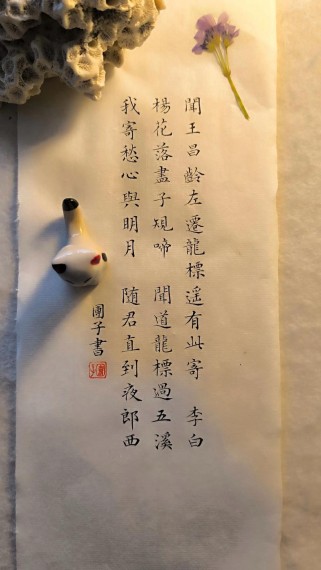 聞王昌齡左遷龍標遥有此寄 李白
楊花落盡子規啼 聞道龍標過五溪
我寄愁心與明月 随君直到夜郎西
團子書